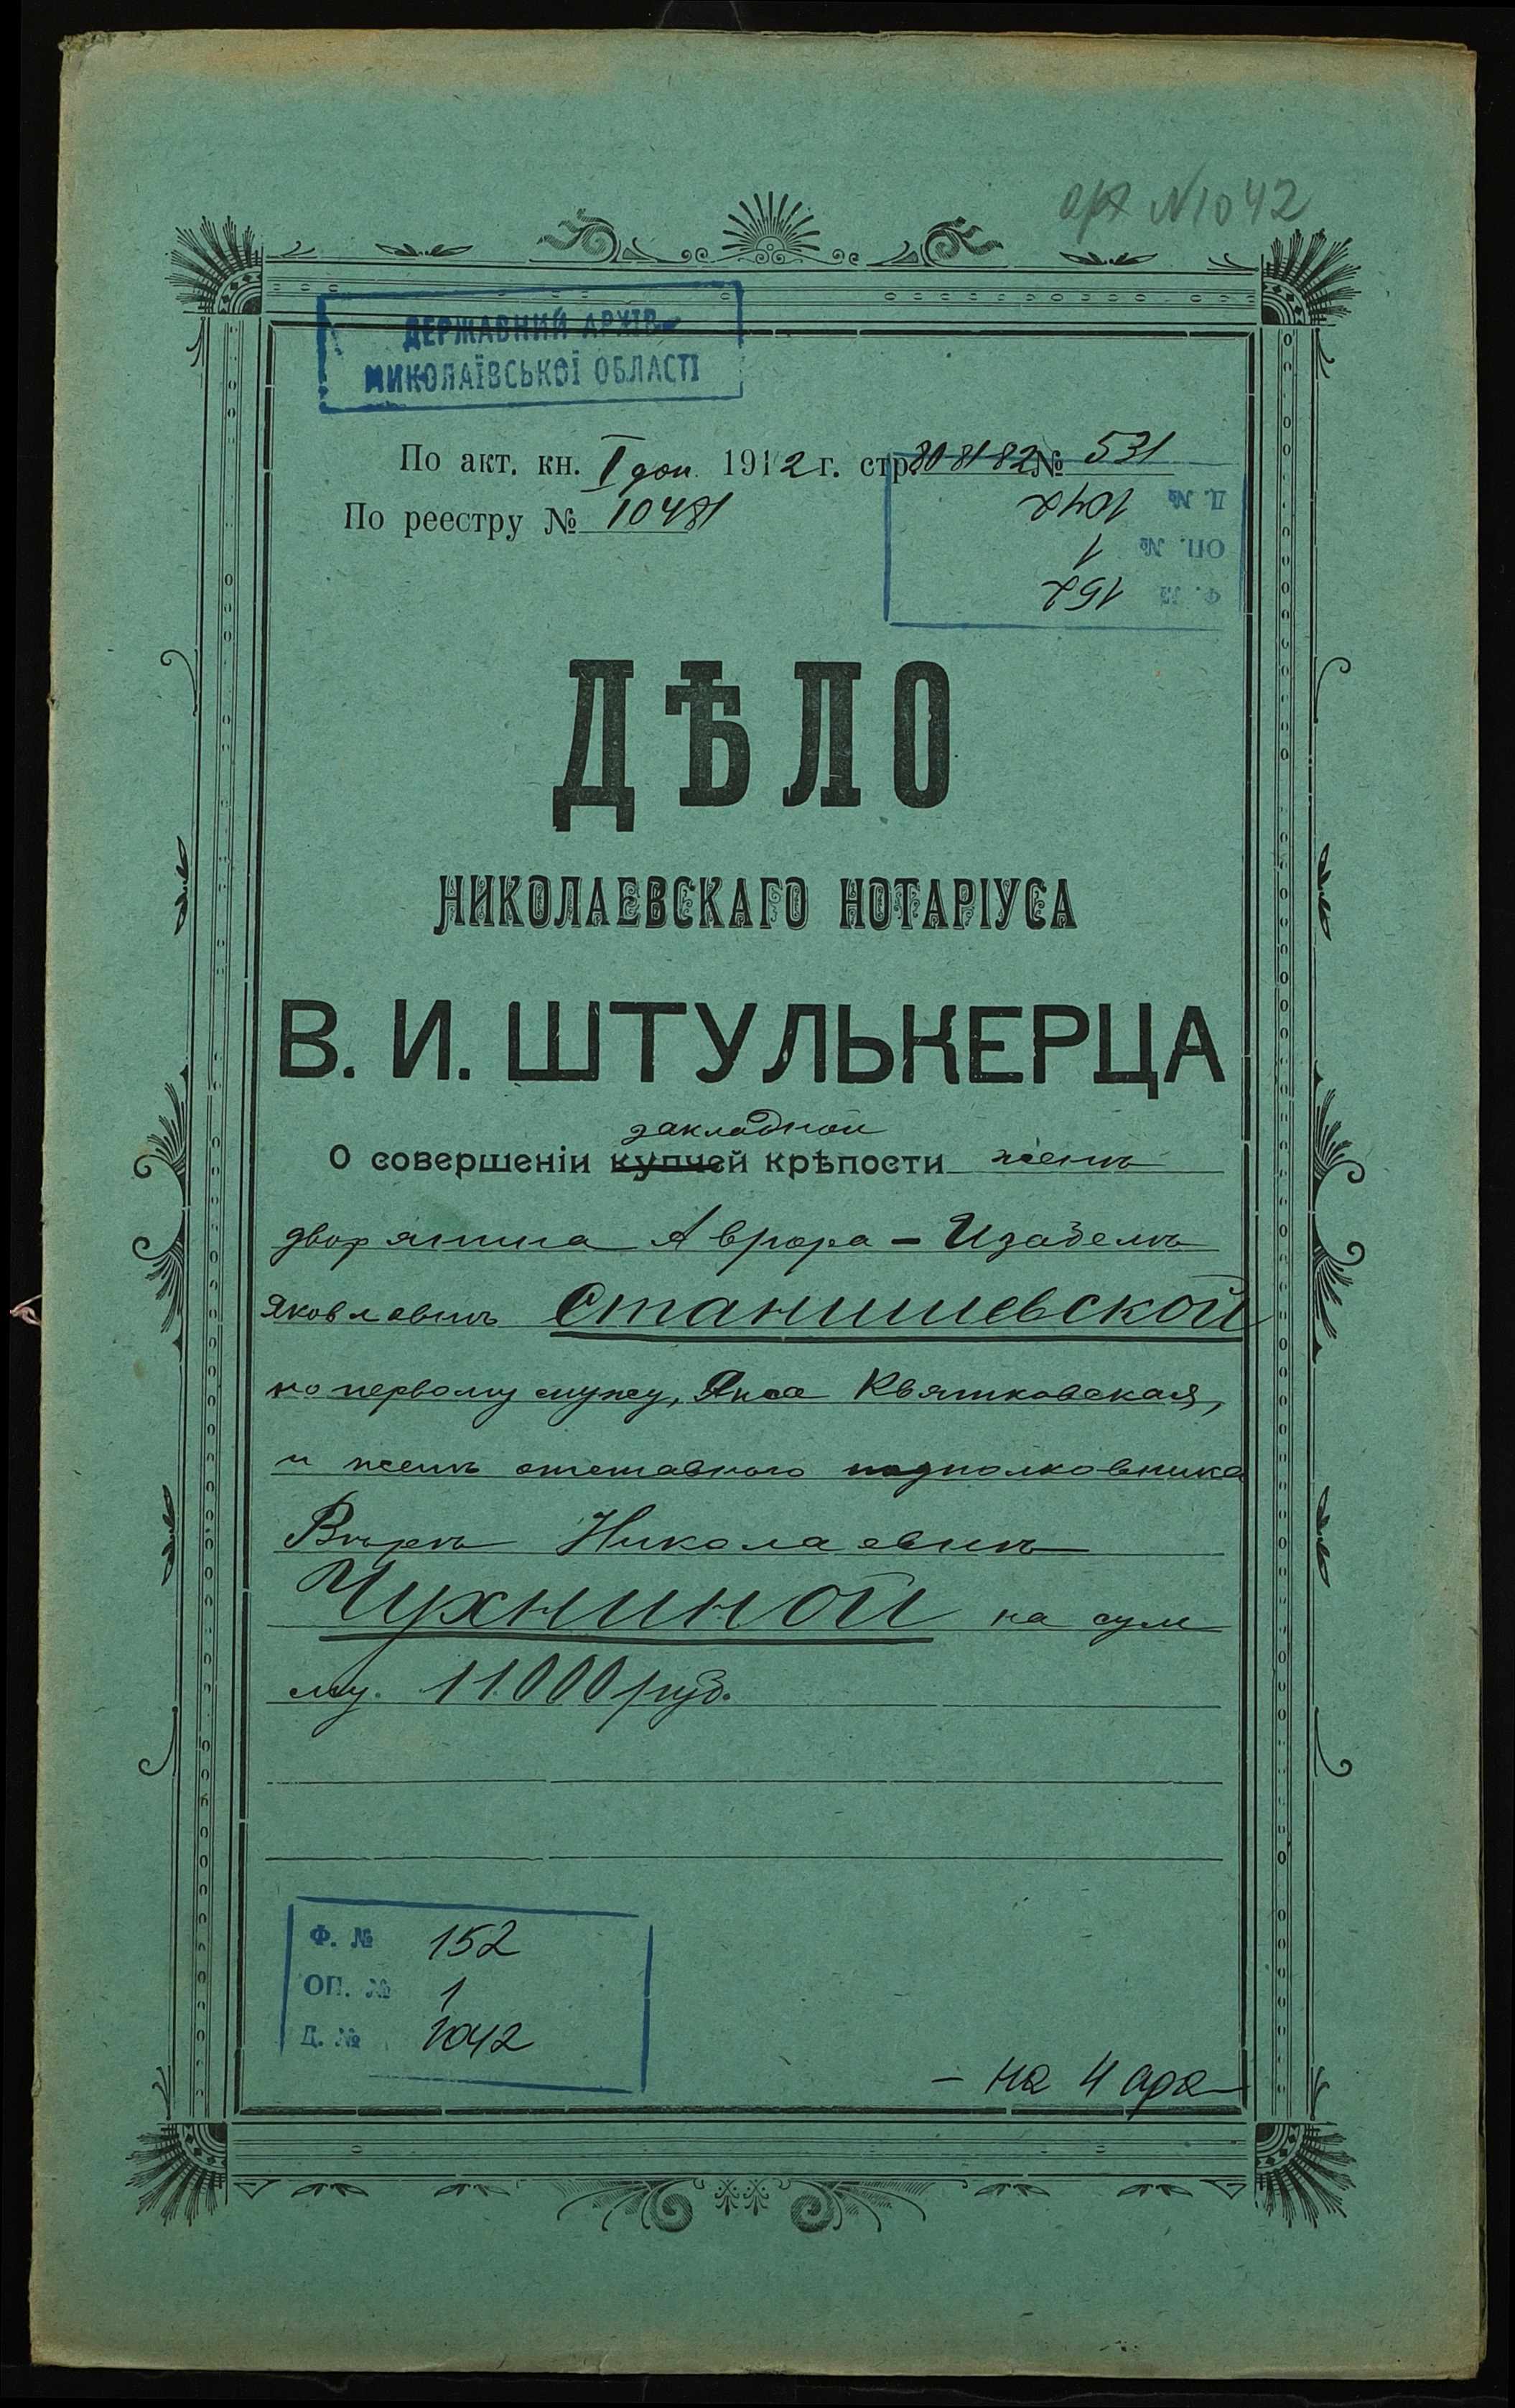 арх N1042
ДЕРЖАВНИЙ АРХІВ
МИКОЛАЇВСЬКОЇ ОБЛАСТІ
По акт. кн. I доп. 1912 г. стр. 80 81 82 № 531
По реестру № 10481
Д. № 1042
ОП. № 1
Ф. № 152
ДѢЛО
НИКОЛАЕВСКАГО НОТАРІУСА
В. И. ШТУЛЬКЕРЦА
закладной
О совершеніи купчей крѣпости женѣ
дворянина Аврора-Изабелѣ
Яковлевнѣ Станишевской
по первому мужу, Квятковская,
и женѣ отставного подполковника
Вѣрѣ Николаевнѣ
Чухниной на сум
му 11000 руб.
Ф. № 152
ОП. № 1
Д. № 1042
- на 4 арк